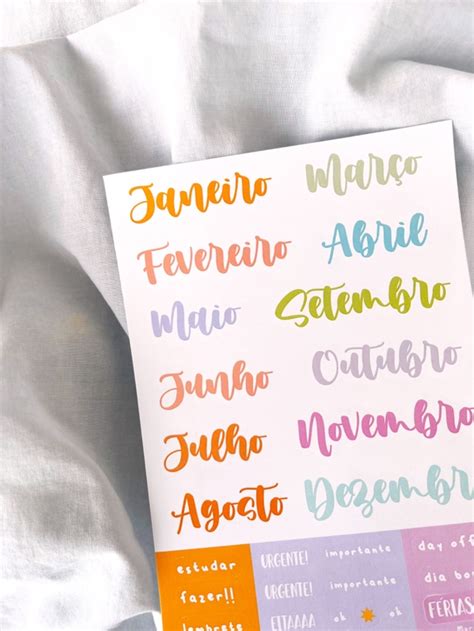 Janeiro Março
Fevereiro Abril
Maio Setembro
Junho Outubro
Julho Novembro
Agosto Dezembr
estudar URGENTE! importante day off
fazer!! URGENTE! importante dia bo
lembrete EITAAAA ok ok FÉRIAS